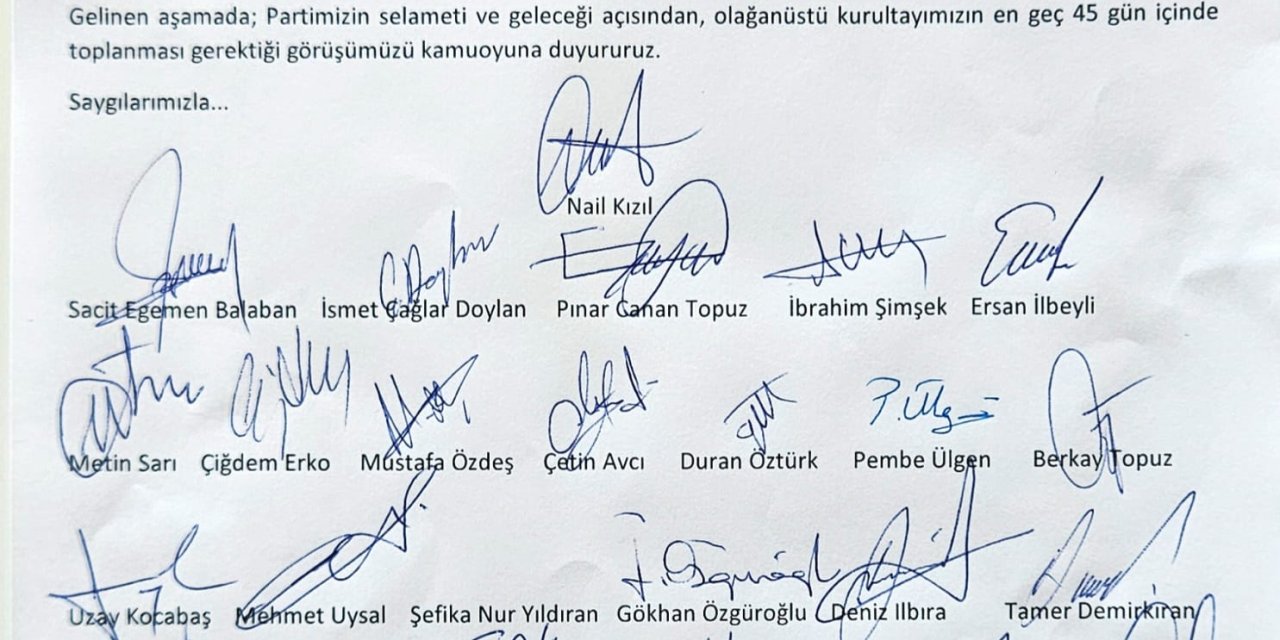 Gelinen aşamada; Partimizin selameti ve geleceği açısından, olağanüstü kurultayımızın en geç 45 gün içinde
toplanması gerektiği görüşümüzü kamuoyuna duyururuz.
Saygılarımızla...
Nail Kızıl
Sacit Egemen Balaban İsmet Çağlar Doylan Pınar Canan Topuz İbrahim Şimşek Ersan İlbeyli
P. Ülgen
Metin Sarı Çiğdem Erko Mustafa Özdeş Çetin Avcı Duran Öztürk Pembe Ülgen Berkay Topuz
Uzay Kocabaş Mehmet Uysal Şefika Nur Yıldıran Gökhan Özgüroğlu Deniz Ilbıra Tamer Demirkıran